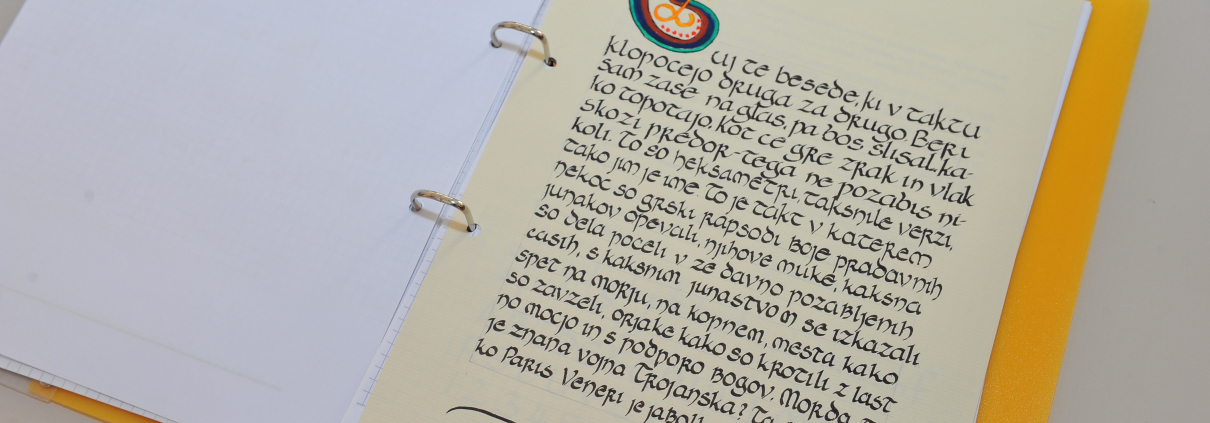 uj te besede, ki v taktu
klopocejo druga za drugo. Beri
sam zase na glas, pa bos slisal, ka-
ko topotajo. Kot ce gre zrak in vlak
skozi predor - tega ne pozabis ni-
koli. To so heksametri, taksnile verzi,
tako jim je ime. To je takt v katerem
nekoc so grski rapsodi boje pradavnih
junakov opevali, njihove muke, kaksna
so dela poceli v ze davno pozabljenih
casih, s kaksnim junastvom se izkazali
spet na morju, na kopnem, mesta kako
so zavzeli, orjake kako so krotili z last
no mocjo in s podporo bogov. Morda
je znana vojna Trojanska? Ta
ko Paris Veneri je jabol